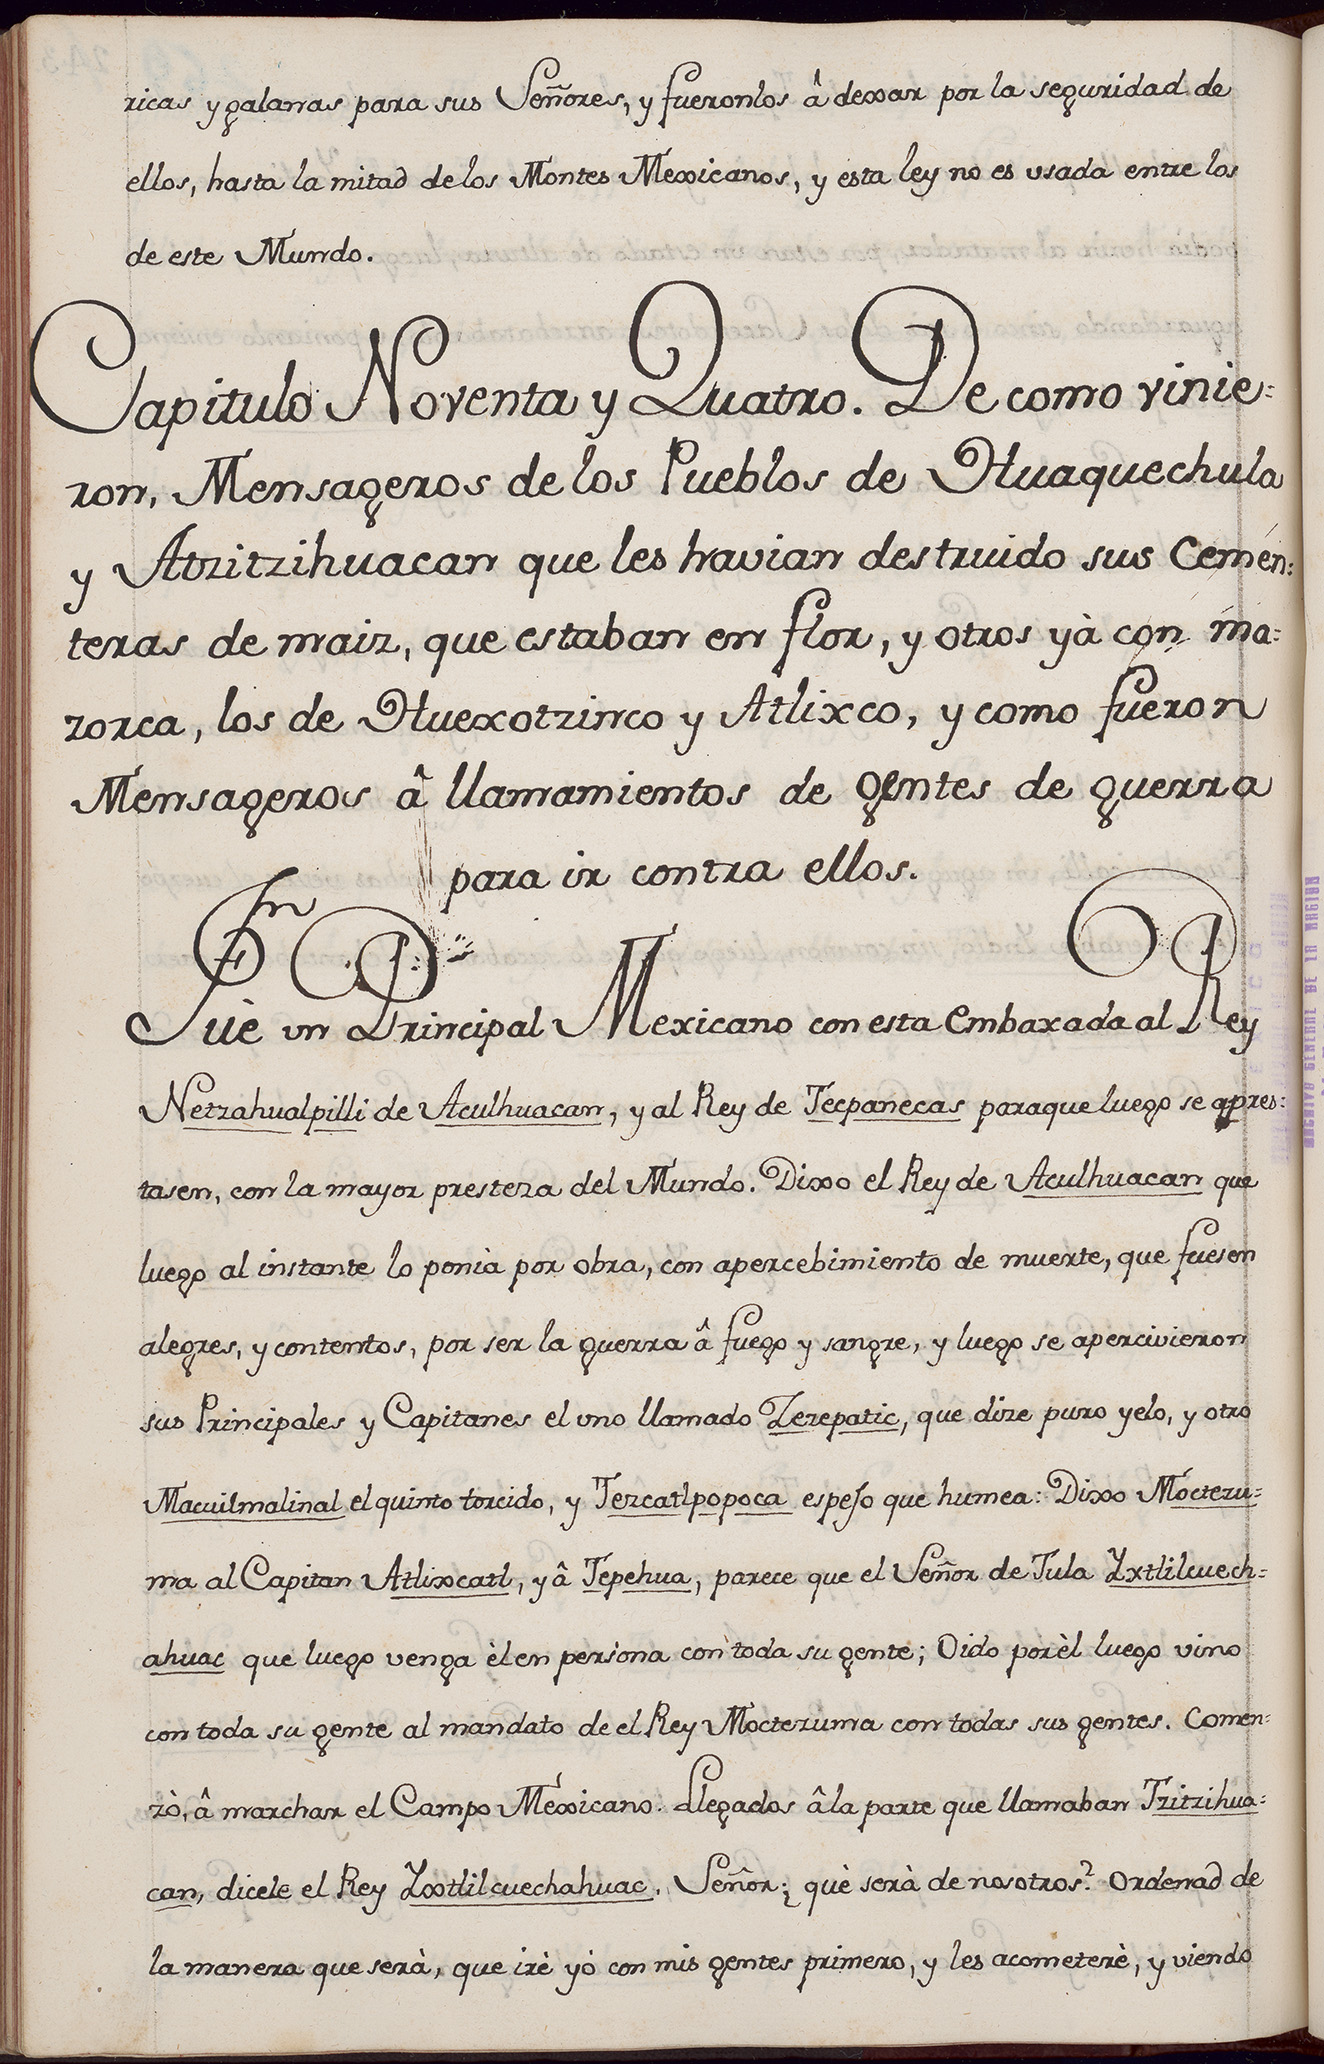 ricas y galanas para sus Señores, y fueronlos â dexar por la seguridad de
ellos, hasta la mitad de los Montes Mexicanos, y esta ley no es usada entre los
de este Mundo.
Capitulo Noventa y Quatro. De como vinie=
ron, Mensageros de los Pueblos de Huaquechula
y Atzitzihuacan que les havian destruido sus Cemen=
teras de maiz, que estaban en flor, y otros yà con ma=
zorca, los de Huexotzinco y Atlixco, y como fueron
Mensageros â llamamientos de gentes de guerra
para ir contra ellos.
Fuè un Principal Mexicano con esta embaxada al Rey
Netzahualpilli de Aculhuacan, y al Rey de Tecpanecas paraque luego se apres=
tasen, con la mayor presteza del Mundo. Dixo el Rey de Aculhuacan que
luego al instante lo ponia por obra, con apercebimiento de muerte, que fuesen
alegres, y contentos, por ser la guerra â fuego y sangre, y luego se apercivieron
sus Principales y Capitanes el uno llamado Zezepatic, que dize puro yelo, y otro
Macuilmalinal el quinto torcido, y Tezcatlpopoca espeso que humea: Dixo Moctezu=
ma al Capitan Atlixcatl, y â Tepehua, parece que el Señor de Tula Yxtlilcuech=
ahuac que luego venga èl en persona con toda su gente; Oido por èl luego vino
con toda su gente al mandato de el Rey Moctezuma con todas sus gentes. Comen=
zò, â marchar el Campo Mexicano. Llegados â la parte que llamaban Tzitzihua=
can, dicele el Rey Yxtlilcuechahuac, Señor; què serà de nosotros? Ordenad de
la manera que serà, que irè yò con mis gentes primero, y les acometerè, y viendo
ARCHIVO GENERAL DE LA NACION